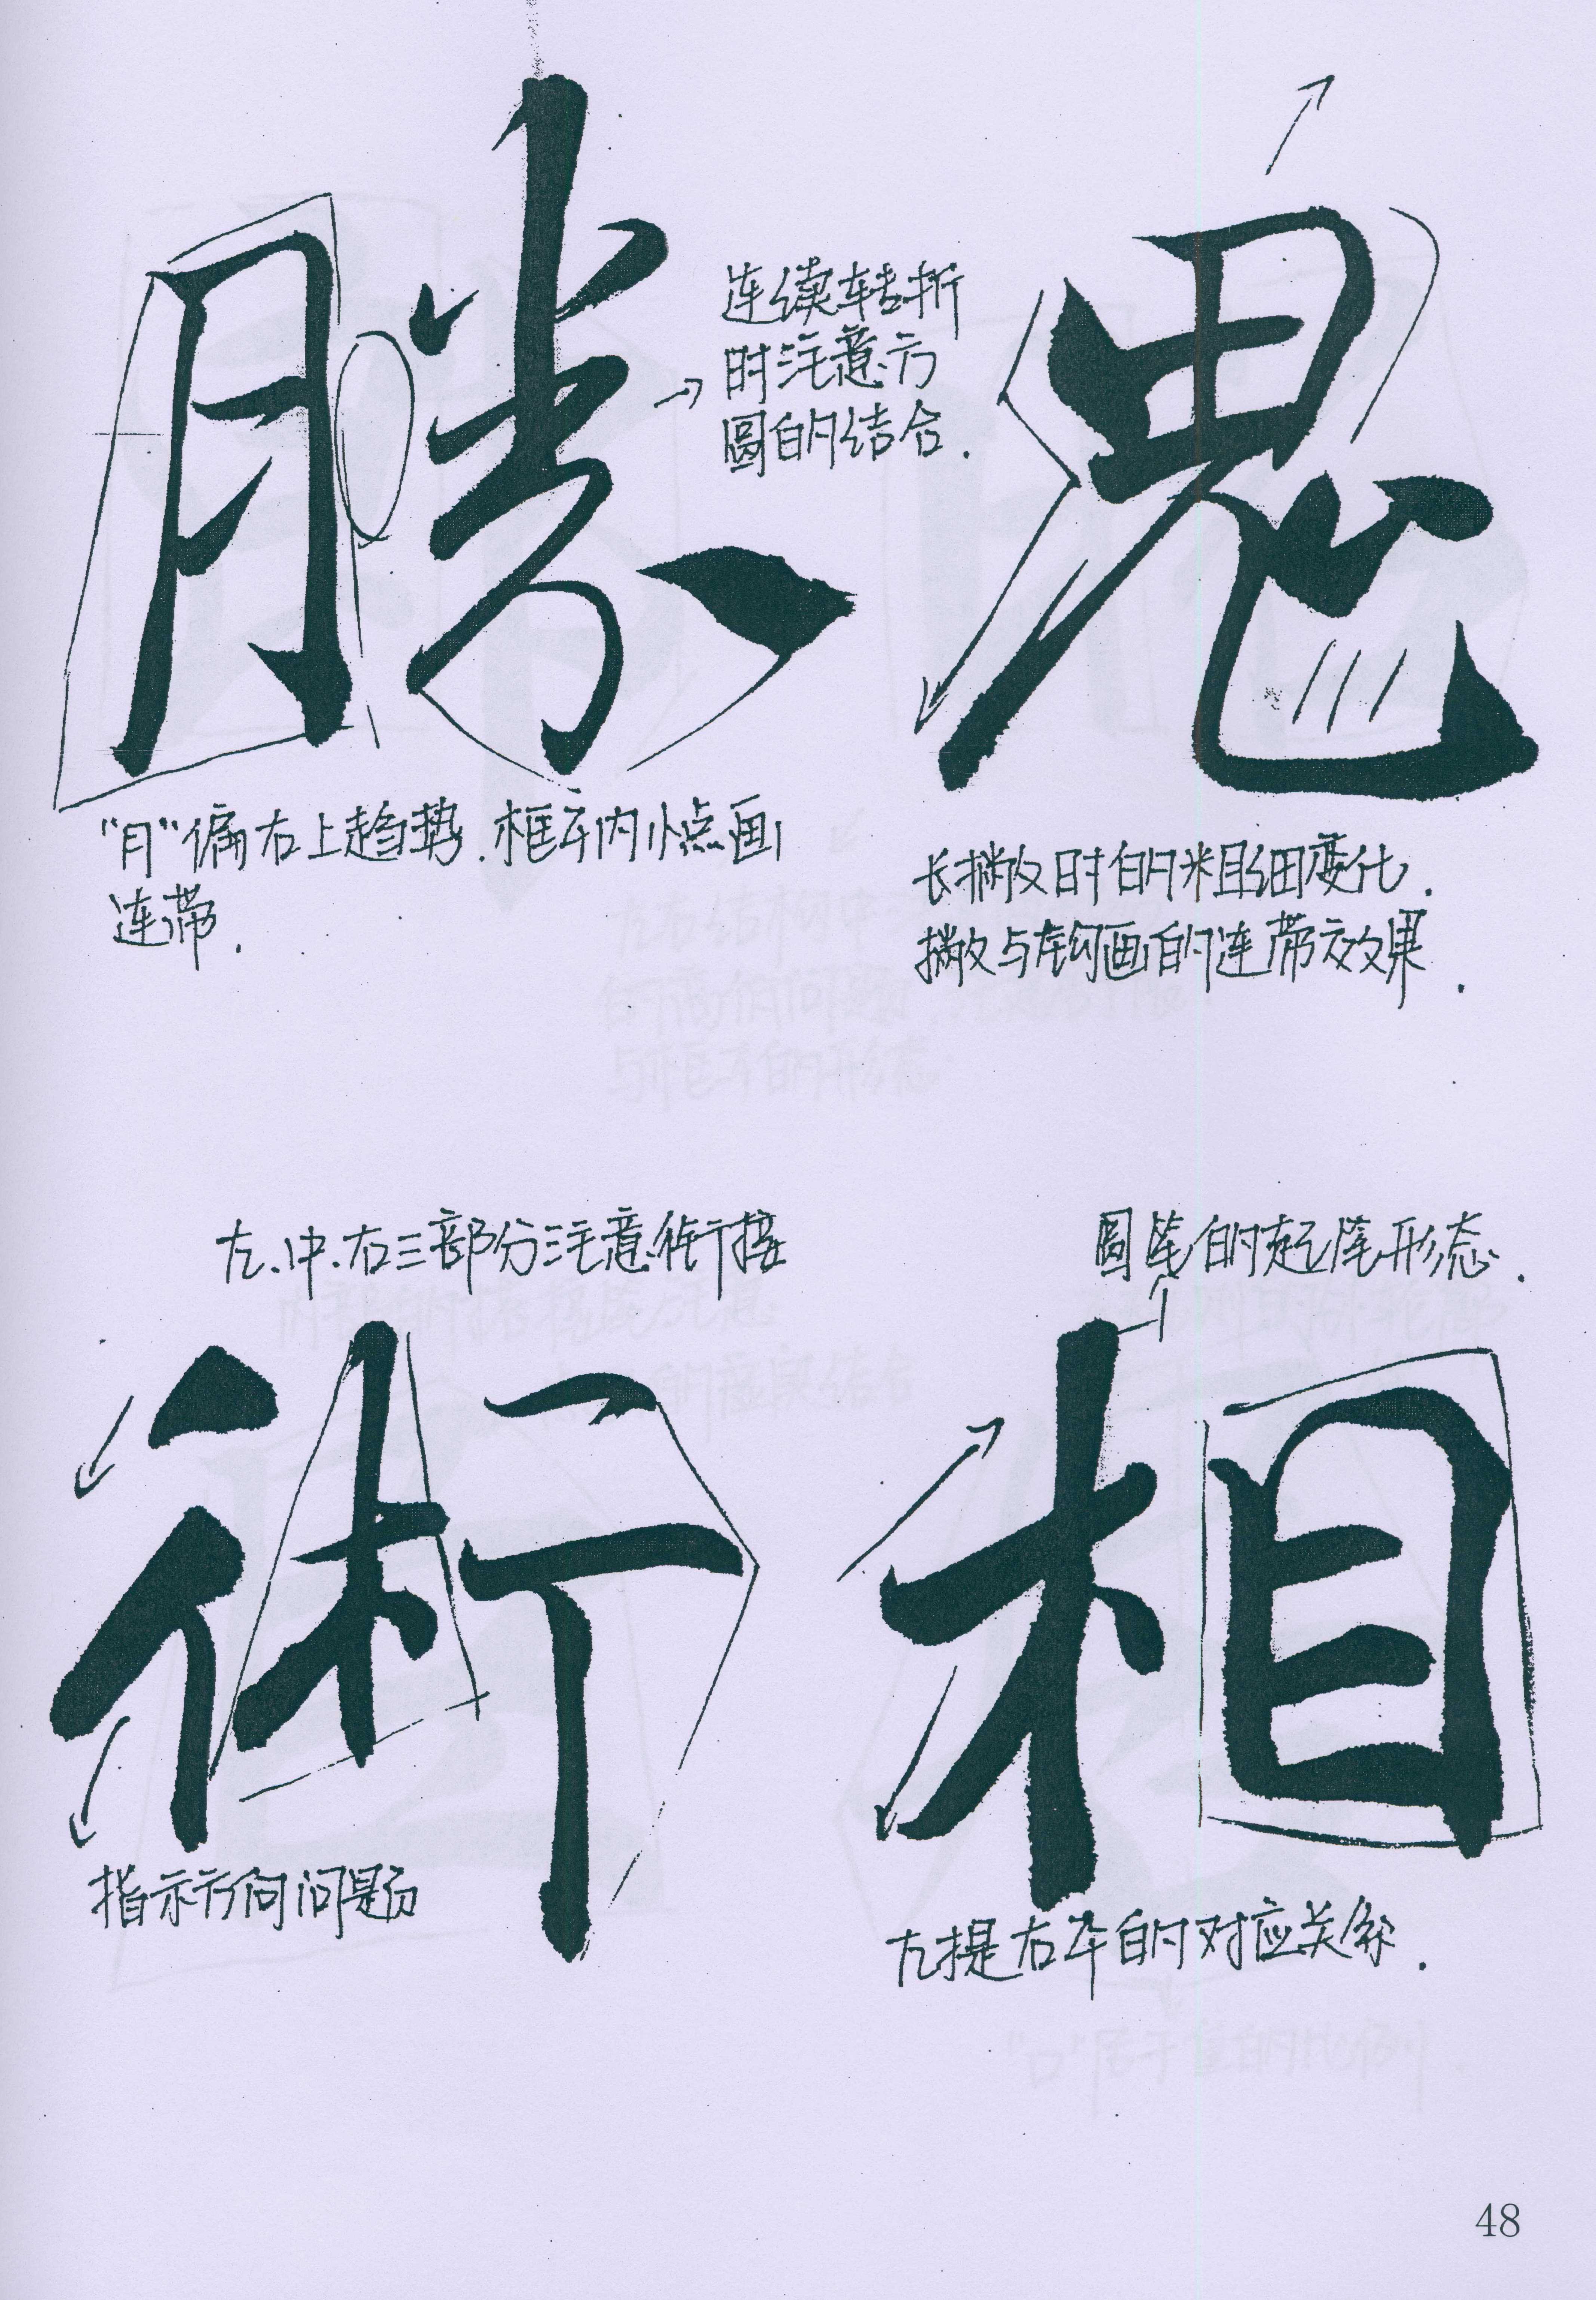 勝
连续转折
时注意方
圆的结合.
鬼
"月"偏右上趋势.框子内小点画
连带.
长撇时的粗细变化.
撇与钩画的连带效果.
左、中、右三部分注意衔接
圆笔的起笔形态.
術
相
指示方向问题
左提右平的对应关系.
48